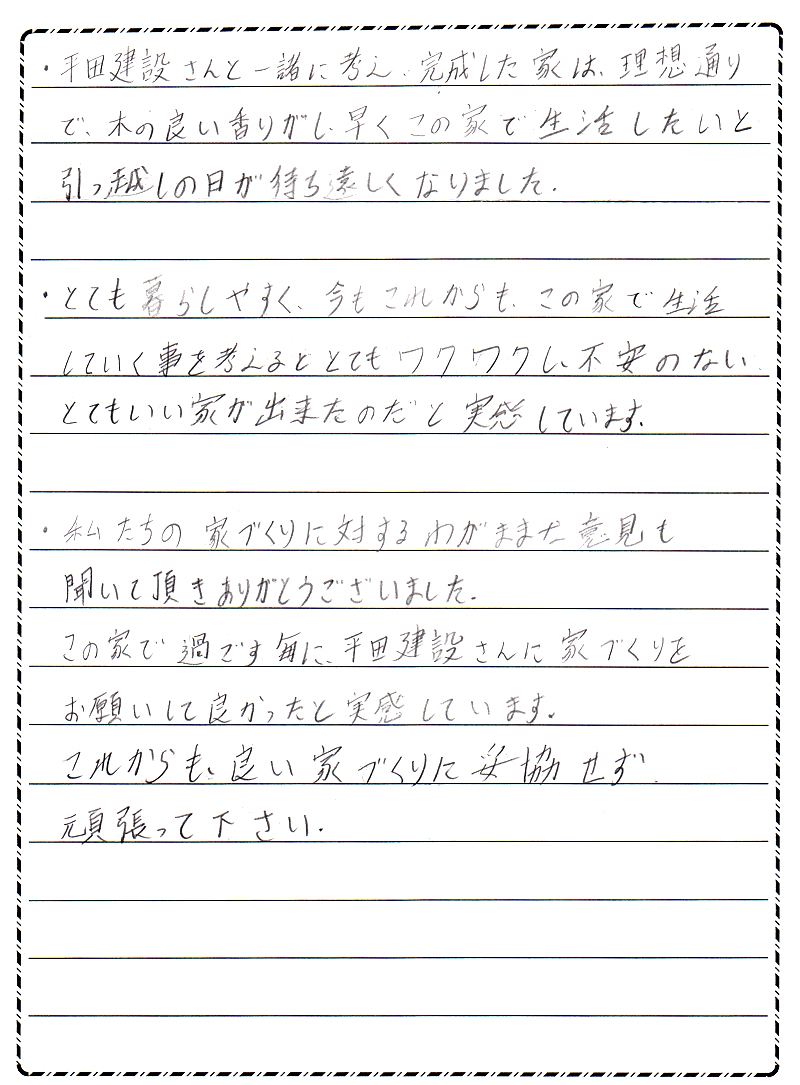 ・平田建設さんと一緒に考え、完成した家は、理想通り
で、木の良い香りがし、早くこの家で生活したいと
引っ越しの日が待ち遠しくなりました。
・とても暮らしやすく、今もこれからも、この家で生活
していく事を考えるととてもワクワクし、不安のない、
とてもいい家が出来たのだと実感しています。
・私たちの家づくりに対するわがままな意見も
聞いて頂きありがとうございました。
この家で過ごす毎に、平田建設さんに家づくりを
お願いして良かったと実感しています。
これからも、良い家づくりに妥協せず、
頑張って下さい。